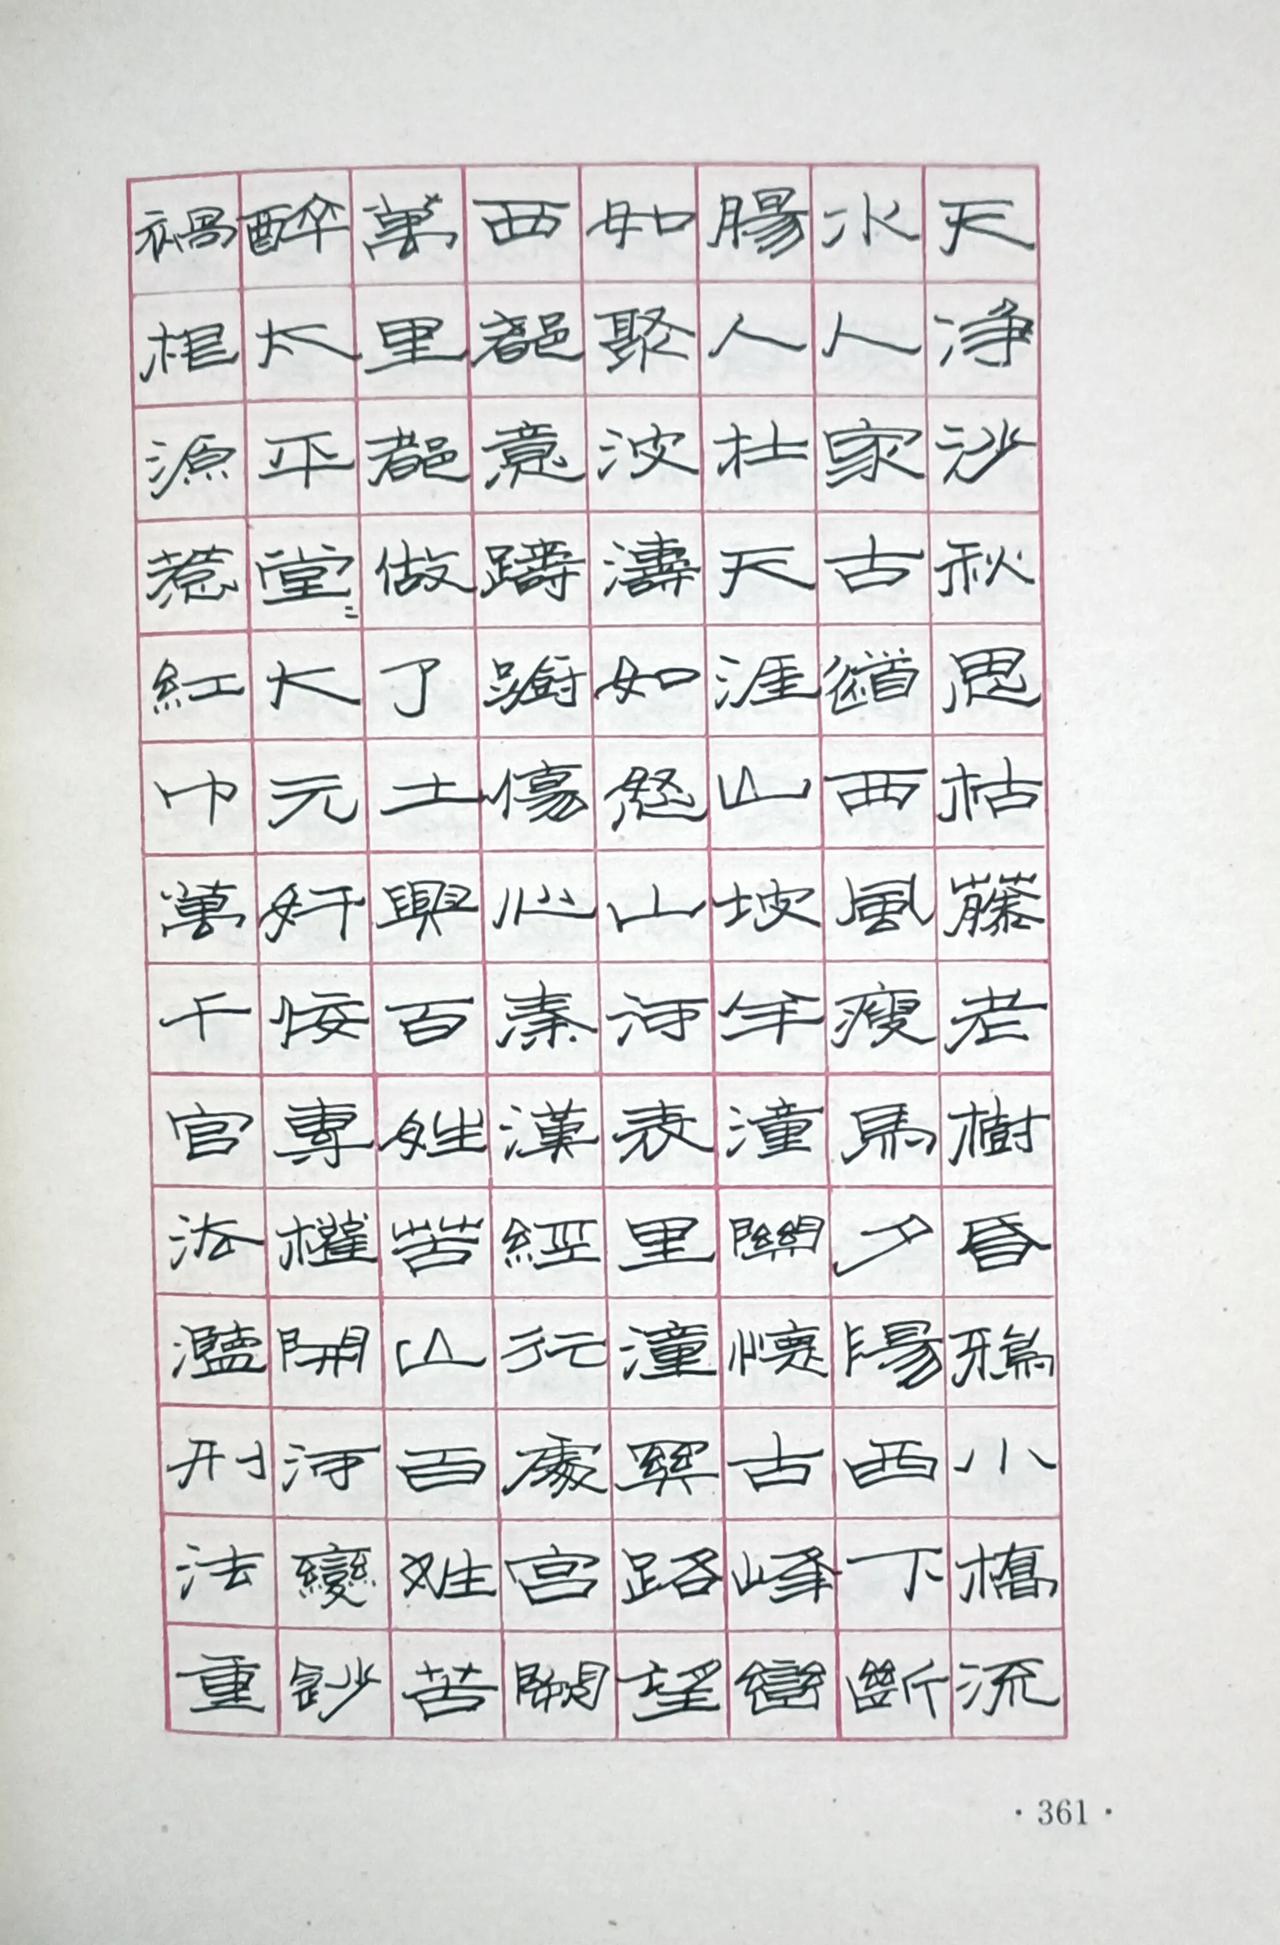 天净沙秋思枯藤老樹昏鴉小橋流
水人家古道西風瘦馬夕陽西下斷
腸人在天涯山坡羊潼關懷古峰巒
如聚波濤如怒山河表里潼關路望
西都意躊躕傷心秦漢經行處宮闕
萬里都做了土興百姓苦亡百姓苦
醉太平堂〻大元奸佞專權開河變鈔
禍根源惹紅巾萬千官法濫刑法重
·361·